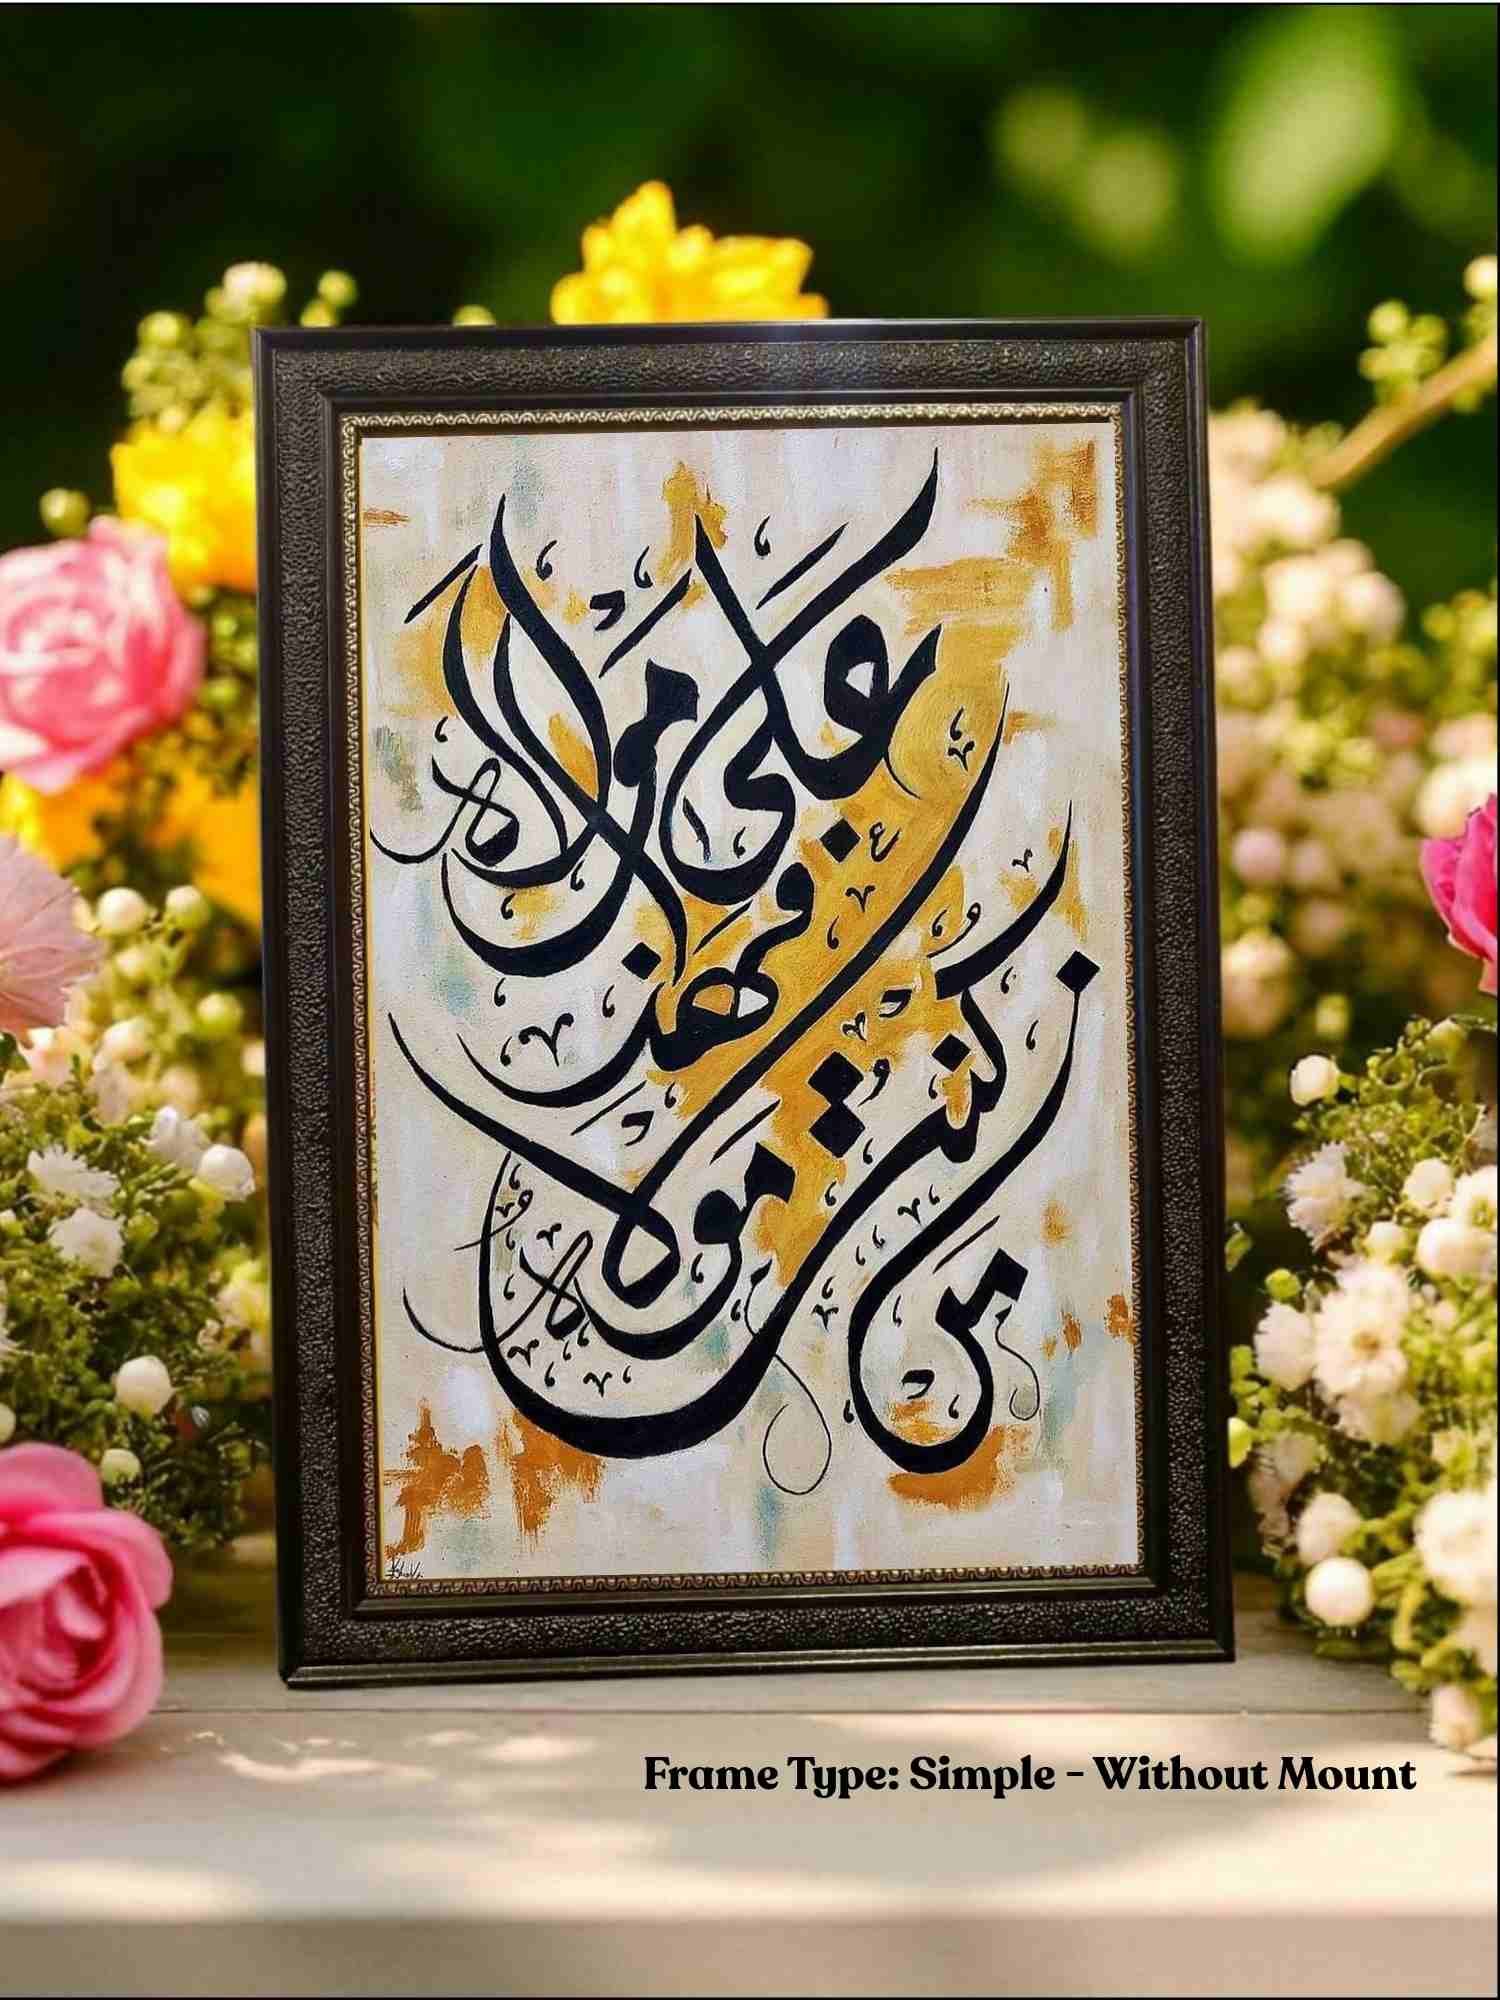 من كنت مولاه
فهذا
علی مولاه
Frame Type: Simple - Without Mount